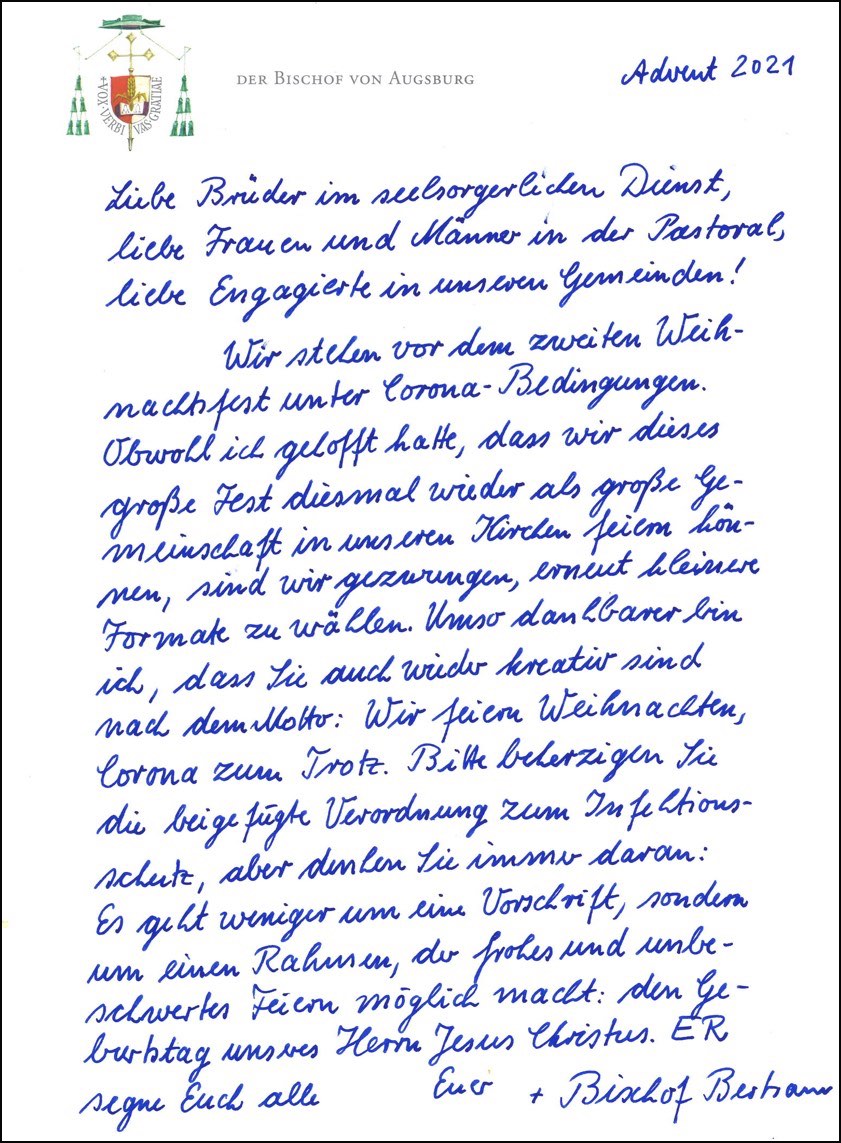 DER BISCHOF VON AUGSBURG
Advent 2021
+VOX·VERBI VAS·GRATIAE
Liebe Brüder im seelsorgerlichen Dienst,
liebe Frauen und Männer in der Pastoral,
liebe Engagierte in unseren Gemeinden!
Wir stehen vor dem zweiten Weih-
nachtsfest unter Corona-Bedingungen.
Obwohl ich gehofft hatte, dass wir dieses
große Fest diesmal wieder als große Ge-
meinschaft in unseren Kirchen feiern kön-
nen, sind wir gezwungen, erneut kleinere
Formate zu wählen. Umso dankbarer bin
ich, dass Sie auch wieder kreativ sind
nach dem Motto: Wir feiern Weihnachten,
Corona zum Trotz. Bitte beherzigen Sie
die beigefügte Verordnung zum Infektions-
schutz, aber denken Sie immer daran:
Es geht weniger um eine Vorschrift, sondern
um einen Rahmen, der frohes und unbe-
schwertes Feiern möglich macht: den Ge-
burtstag unseres Herrn Jesus Christus. ER
segne Euch alle Euer + Bischof Bertram